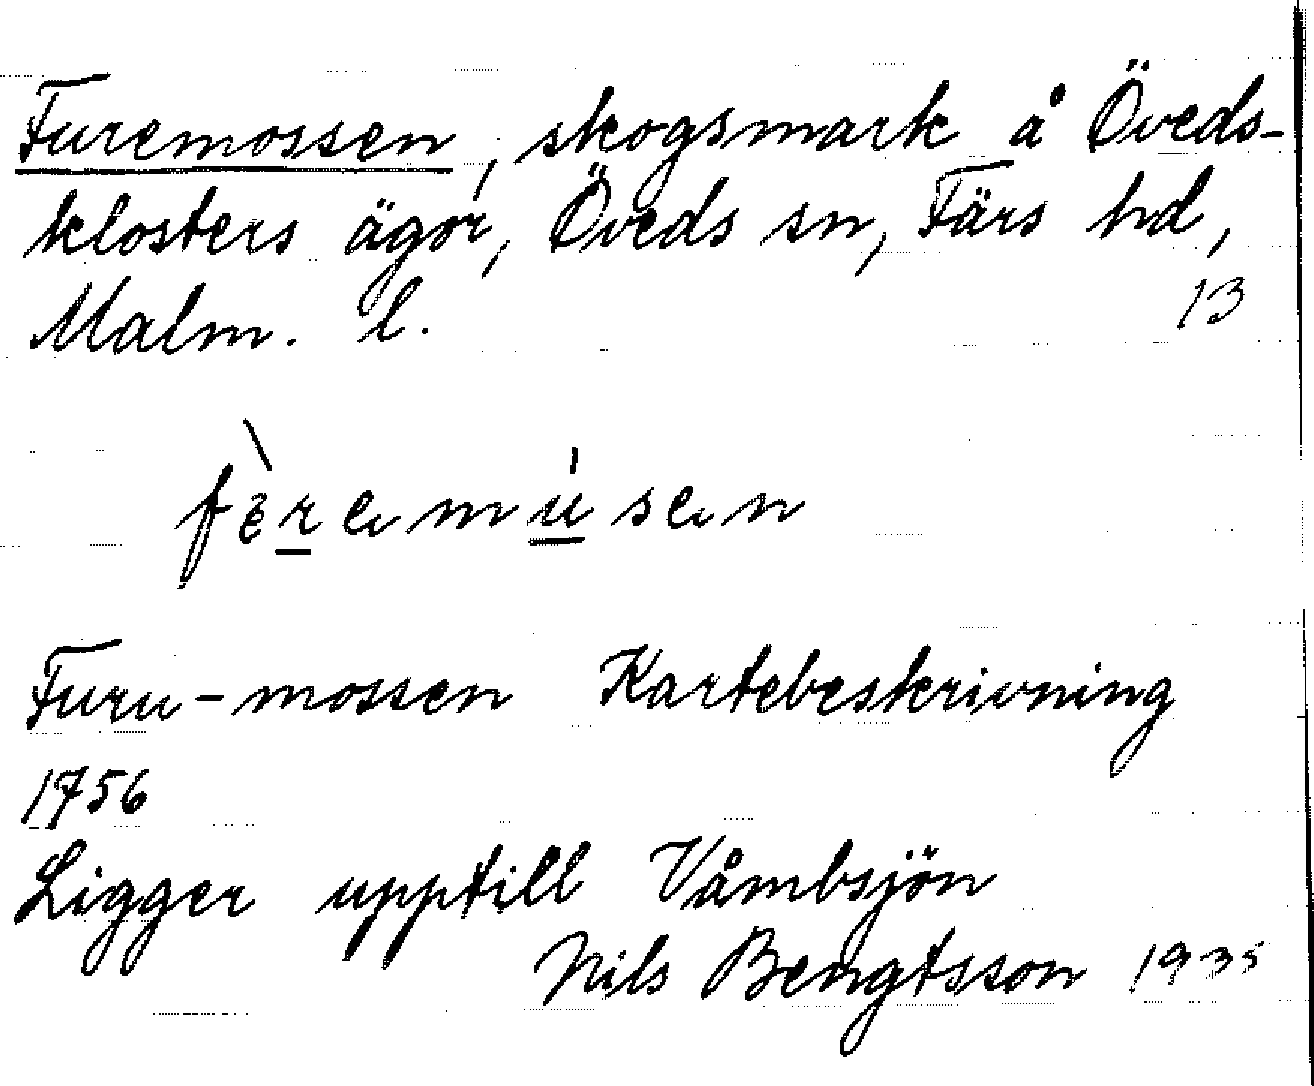 Furemossen, skogsmark å Öveds-
klosters ägor, Öveds sn, Färs hd,
Malm. l. 13
Furu-mossen Kartebeskrivning
1756
Ligger upptill Våmbsjön
Nils Bengtsson 1935